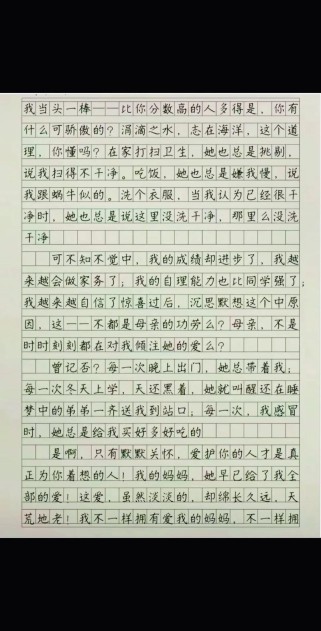 我当头一棒——比你分数高的人多得是，你有
什么可骄傲的？涓滴之水，志在海洋，这个道
理，你懂吗？在家打扫卫生，她也总是挑剔，
说我扫得不干净。吃饭，她也总是嫌我慢，说
我跟蜗牛似的。洗个衣服，当我认为已经很干
净时，她也总是说这里没洗干净，那里么没洗
干净
可不知不觉中，我的成绩却进步了，我越
来越会做家务了；我的自理能力也比同学强了；
我越来越自信了惊喜过后，沉思默想这个中原
因，这——不都是母亲的功劳么？母亲，不是
时时刻刻都在对我倾注她的爱么？
曾记否？每一次晚上出门，她总带着我；
每一次冬天上学，天还黑着，她就叫醒还在睡
梦中的弟弟一齐送我到站口；每一次，我感冒
时，她总是给我买好多好吃的
是啊，只有默默关怀，爱护你的人才是真
正为你着想的人！我的妈妈，她早已给了我全
部的爱！这爱，虽然淡淡的，却绵长久远，天
荒地老！我不一样拥有爱我的妈妈，不一样拥